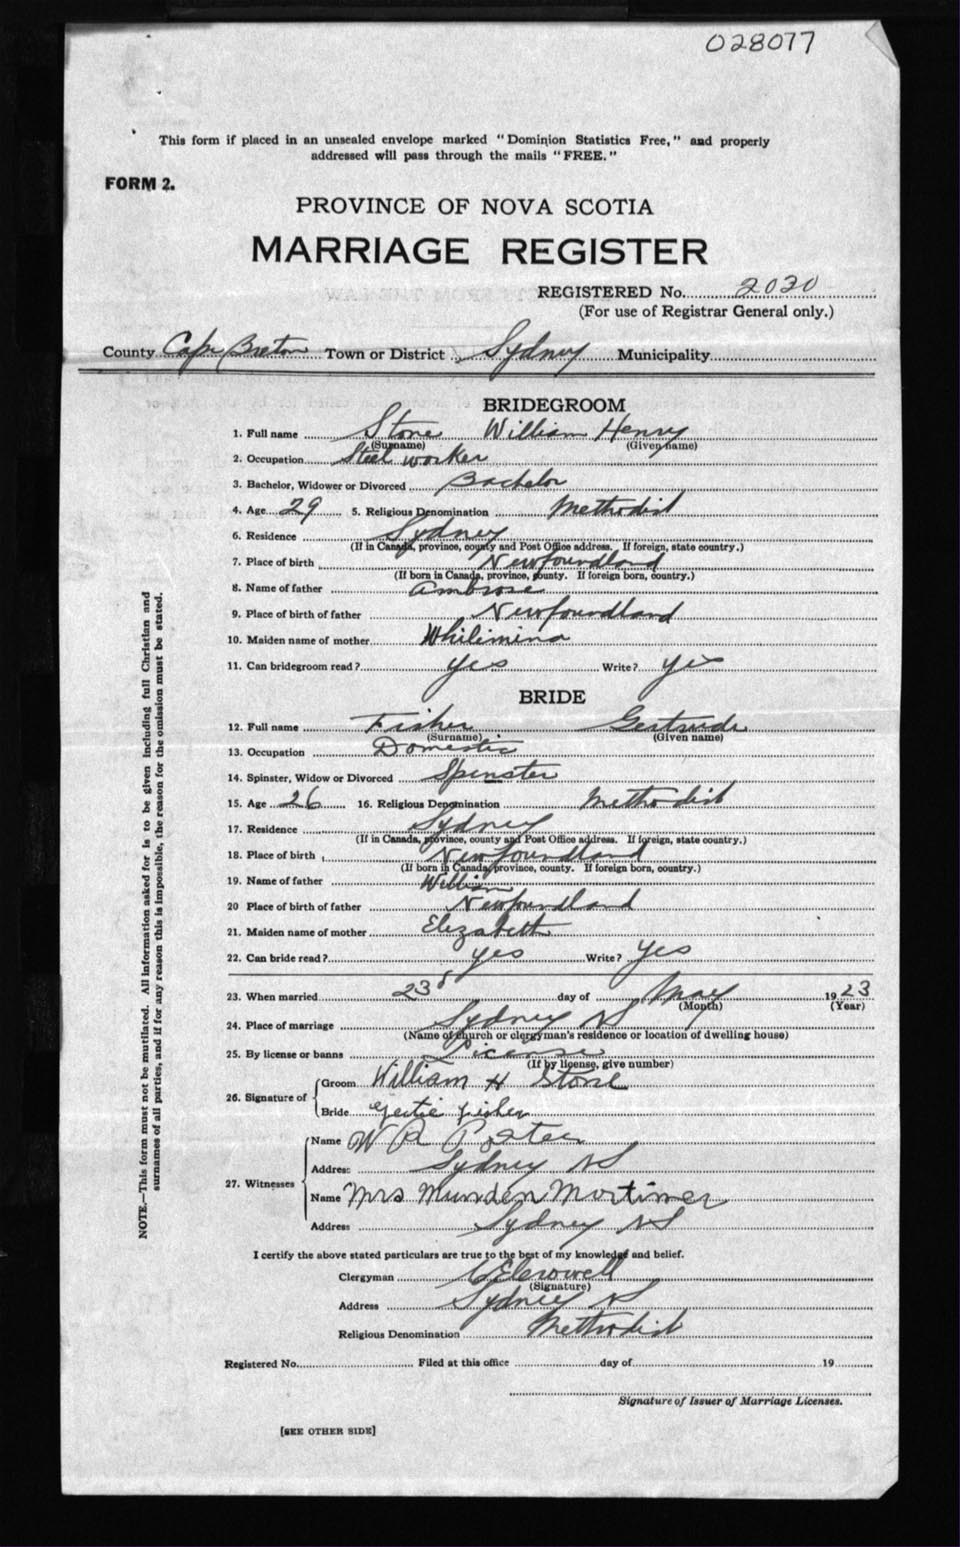 028077
This form if placed in an unsealed envelope marked "Dominion Statistics Free," and properly
addressed will pass through the mails "FREE."
FORM 2.
PROVINCE OF NOVA SCOTIA
MARRIAGE REGISTER
REGISTERED No. 2030
(For use of Registrar General only.)
County Cape Breton Town or District Sydney Municipality
BRIDEGROOM
1. Full name Stone William Henry
(Surname) (Given name)
2. Occupation Steel worker
3. Bachelor, Widower or Divorced Bachelor
4. Age 29 5. Religious Denomination Methodist
6. Residence Sydney
(If in Canada, province, county and Post Office address. If foreign, state country.)
7. Place of birth Newfoundland
(If born in Canada, province, county. If foreign born, country.)
8. Name of father Ambrose
9. Place of birth of father Newfoundland
10. Maiden name of mother Whilimina
11. Can bridegroom read? yes Write? yes
BRIDE
12. Full name Fisher Gertrude
(Surname) (Given name)
13. Occupation Domestic
14. Spinster, Widow or Divorced Spinster
15. Age 26 16. Religious Denomination Methodist
17. Residence Sydney
(If in Canada, province, county and Post Office address. If foreign, state country.)
18. Place of birth Newfoundland
(If born in Canada, province, county. If foreign born, country.)
19. Name of father William
20 Place of birth of father Newfoundland
21. Maiden name of mother Elizabeth
22. Can bride read? yes Write? Yes
23. When married 23 day of May 1923
(Month) (Year)
24. Place of marriage Sydney NS
(Name of church or clergyman's residence or location of dwelling house)
25. By license or banns License
(If by license, give number)
26. Signature of Groom William H Stone
Bride Gertie Fisher
27. Witnesses Name W R
Address Sydney NS
Name Mrs Munden Mortimer
Address Sydney NS
I certify the above stated particulars are true to the best of my knowledge and belief.
Clergyman
(Signature)
Address Sydney NS
Religious Denomination Methodist
Registered No. Filed at this office day of 19
Signature of Issuer of Marriage Licenses.
[SEE OTHER SIDE]
NOTE.—This form must not be mutilated. All information asked for is to be given including full Christian and
surnames of all parties, and if for any reason this is impossible, the reason for the omission must be stated.